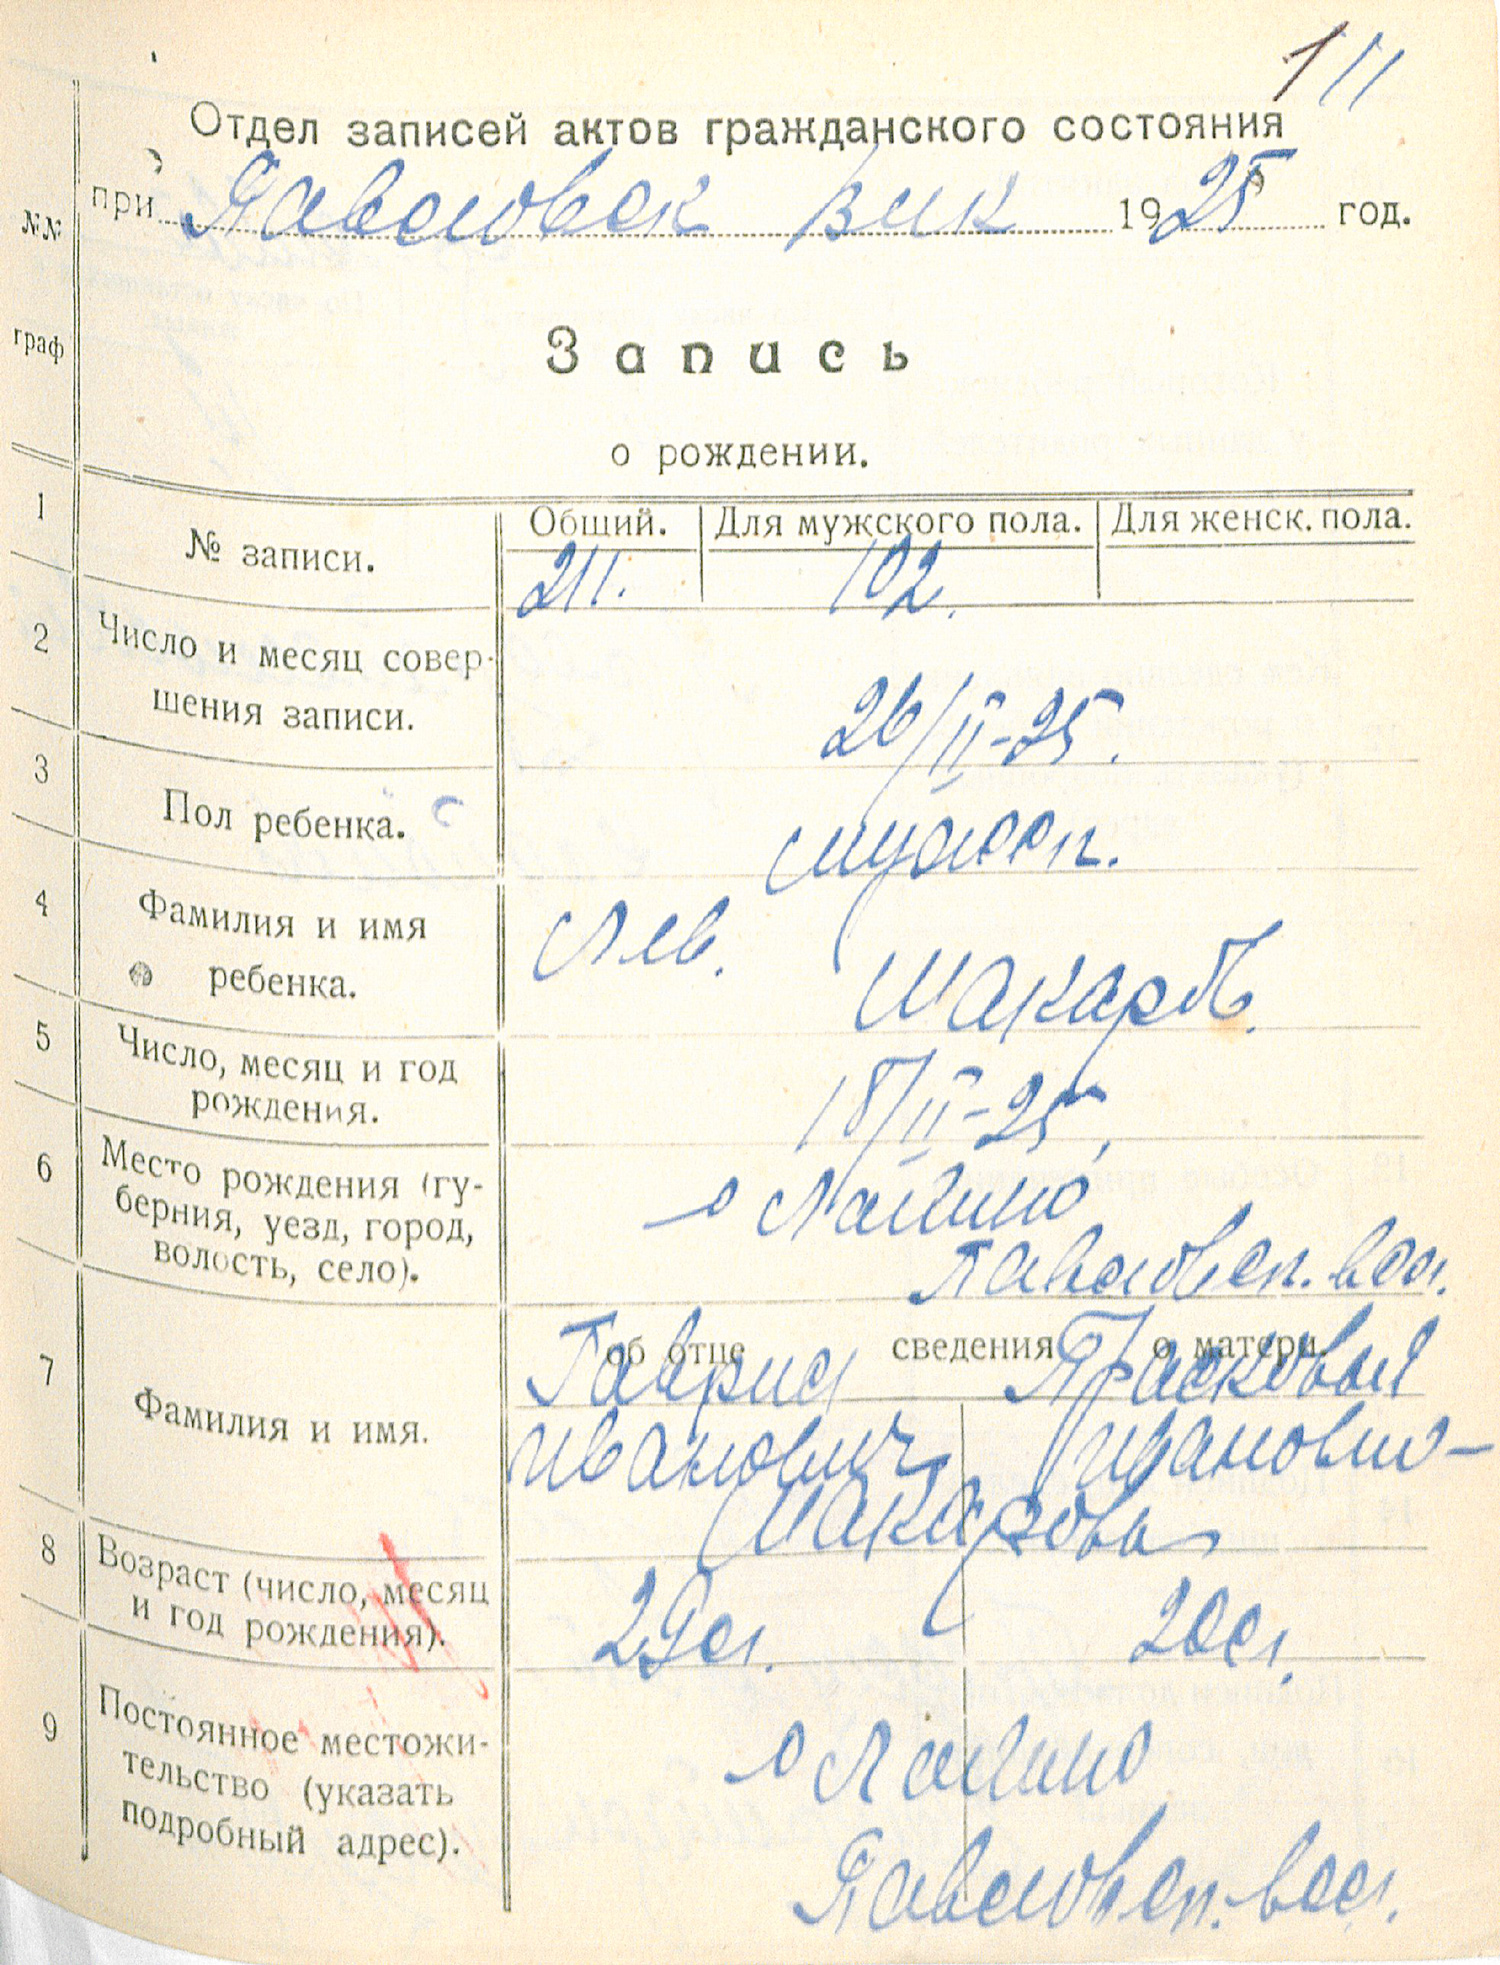 111
Отдел записей актов гражданского состояния
при Павловск вик 1925 год.
№№ граф
Запись
о рождении.
1 № записи. Общий. Для мужского пола. Для женск. пола.
211. 102.
2 Число и месяц совер-
шения записи.
26/II-25.
3 Пол ребенка. мужск.
4 Фамилия и имя
ребенка.
Лев. Макаров.
5 Число, месяц и год
рождения.
18/II-25,
6 Место рождения (гу-
берния, уезд, город,
волость, село).
с Лапино
Павловск. вол.
7 Фамилия и имя.
об отце сведения о матери.
Гаврил Прасковья
Иванович Ивановна
Макаровы
8 Возраст (число, месяц
и год рождения).
29л. 20л.
9 Постоянное местожи-
тельство (указать
подробный адрес).
с Лапино
Павловск. вол.